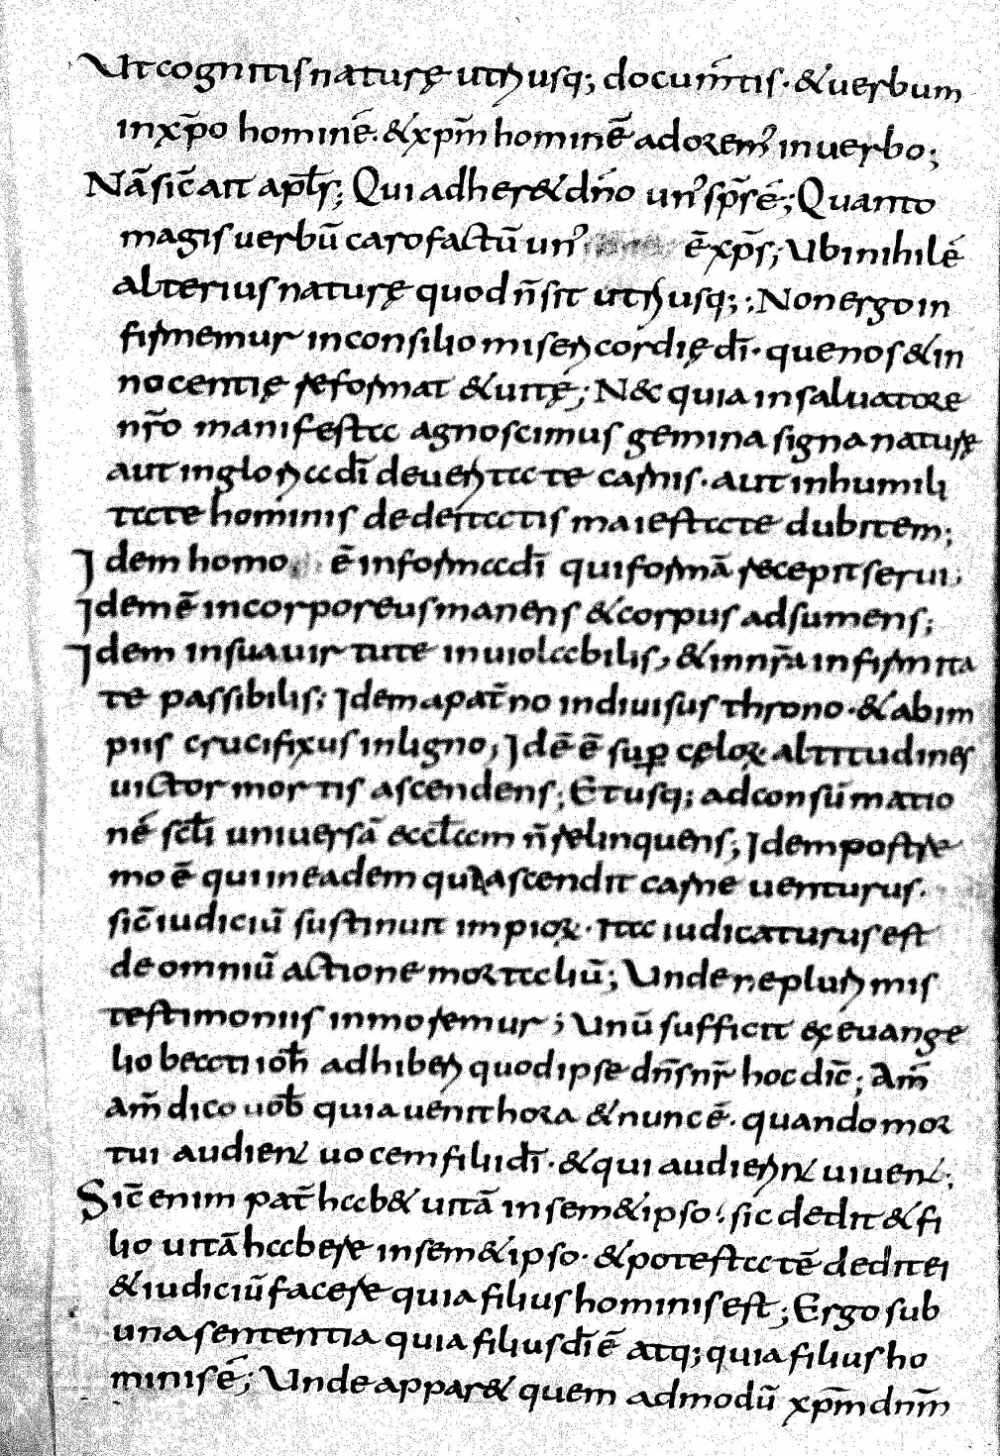 Ut cognitis naturę utriusq; documtis · & uerbum
in xp̄o hominē · & xp̄m hominē adorem' in uerbo;
Nā sic̄ ait apl̄s; Qui adher& dn̄o un' sp̄s ē; Quanto
magis uerbū caro factū un' ē xp̄s; Ubi nihil ē
alterius naturę quod n̄ sit utriusq;; Non ergo in
firmemur in consilio misericordię dī · que nos & in
nocentię reformat & uitę; N& quia in saluatore
nr̄o manifesta agnoscimus gemina signa naturę
aut in gloria dī de ueritate carnis · aut in humili
tate hominis de deitatis maiestate dubitem;
Idem homo ē in forma dī qui formā recepit serui;
Idem ē incorporeus manens & corpus adsumens;
Idem in sua uirtute inuiolabilis, & in nr̄a infirmita
te passibilis; Idem a pat̄no indiuisus throno · & ab im
piis crucifixus in ligno; Idē ē sup cęloꝝ altitudines
uictor mortis ascendens; Et usq; ad consūmatio
nē scl̄i uniuersā eccl̄am n̄ relinquens; Idem postre
mo ē qui in eadem qua ascendit carne uenturus ·
sic̄ iudiciū sustinuit impioꝝ · Ita iudicaturus est
de omniū actione mortaliū; Unde ne plurimis
testimoniis inmoremur; Unū sufficit ex euange
lio beati ioh̄ adhiberi quod ipse dn̄s nr̄ hoc dic̄; Am̄
am̄ dico uob̄ quia uenit hora & nunc ē · quando mor
tui audient uocem filii dī · & qui audierint uiuent;
Sic̄ enim pat̄ hab& uitā in sem&ipso · sic dedit & fi
lio uitā habere in sem&ipso · & potestatē dedit ei
& iudiciū facere quia filius hominis est; Ergo sub
una sententia quia filius dī ē atq; quia filius ho
minis ē; Unde appar& quem admodū xp̄m dnm̄